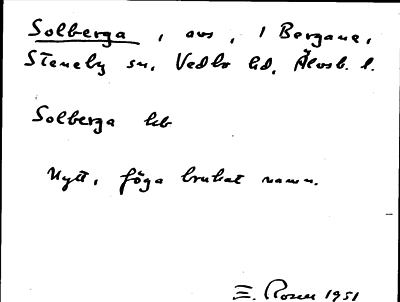 Solberga, avs, 1 Bergane,
Steneby sn, Vedbo hd, Älvsb. l.
Solberga lht
Nytt, föga brukat namn.
E. Rosell 1951